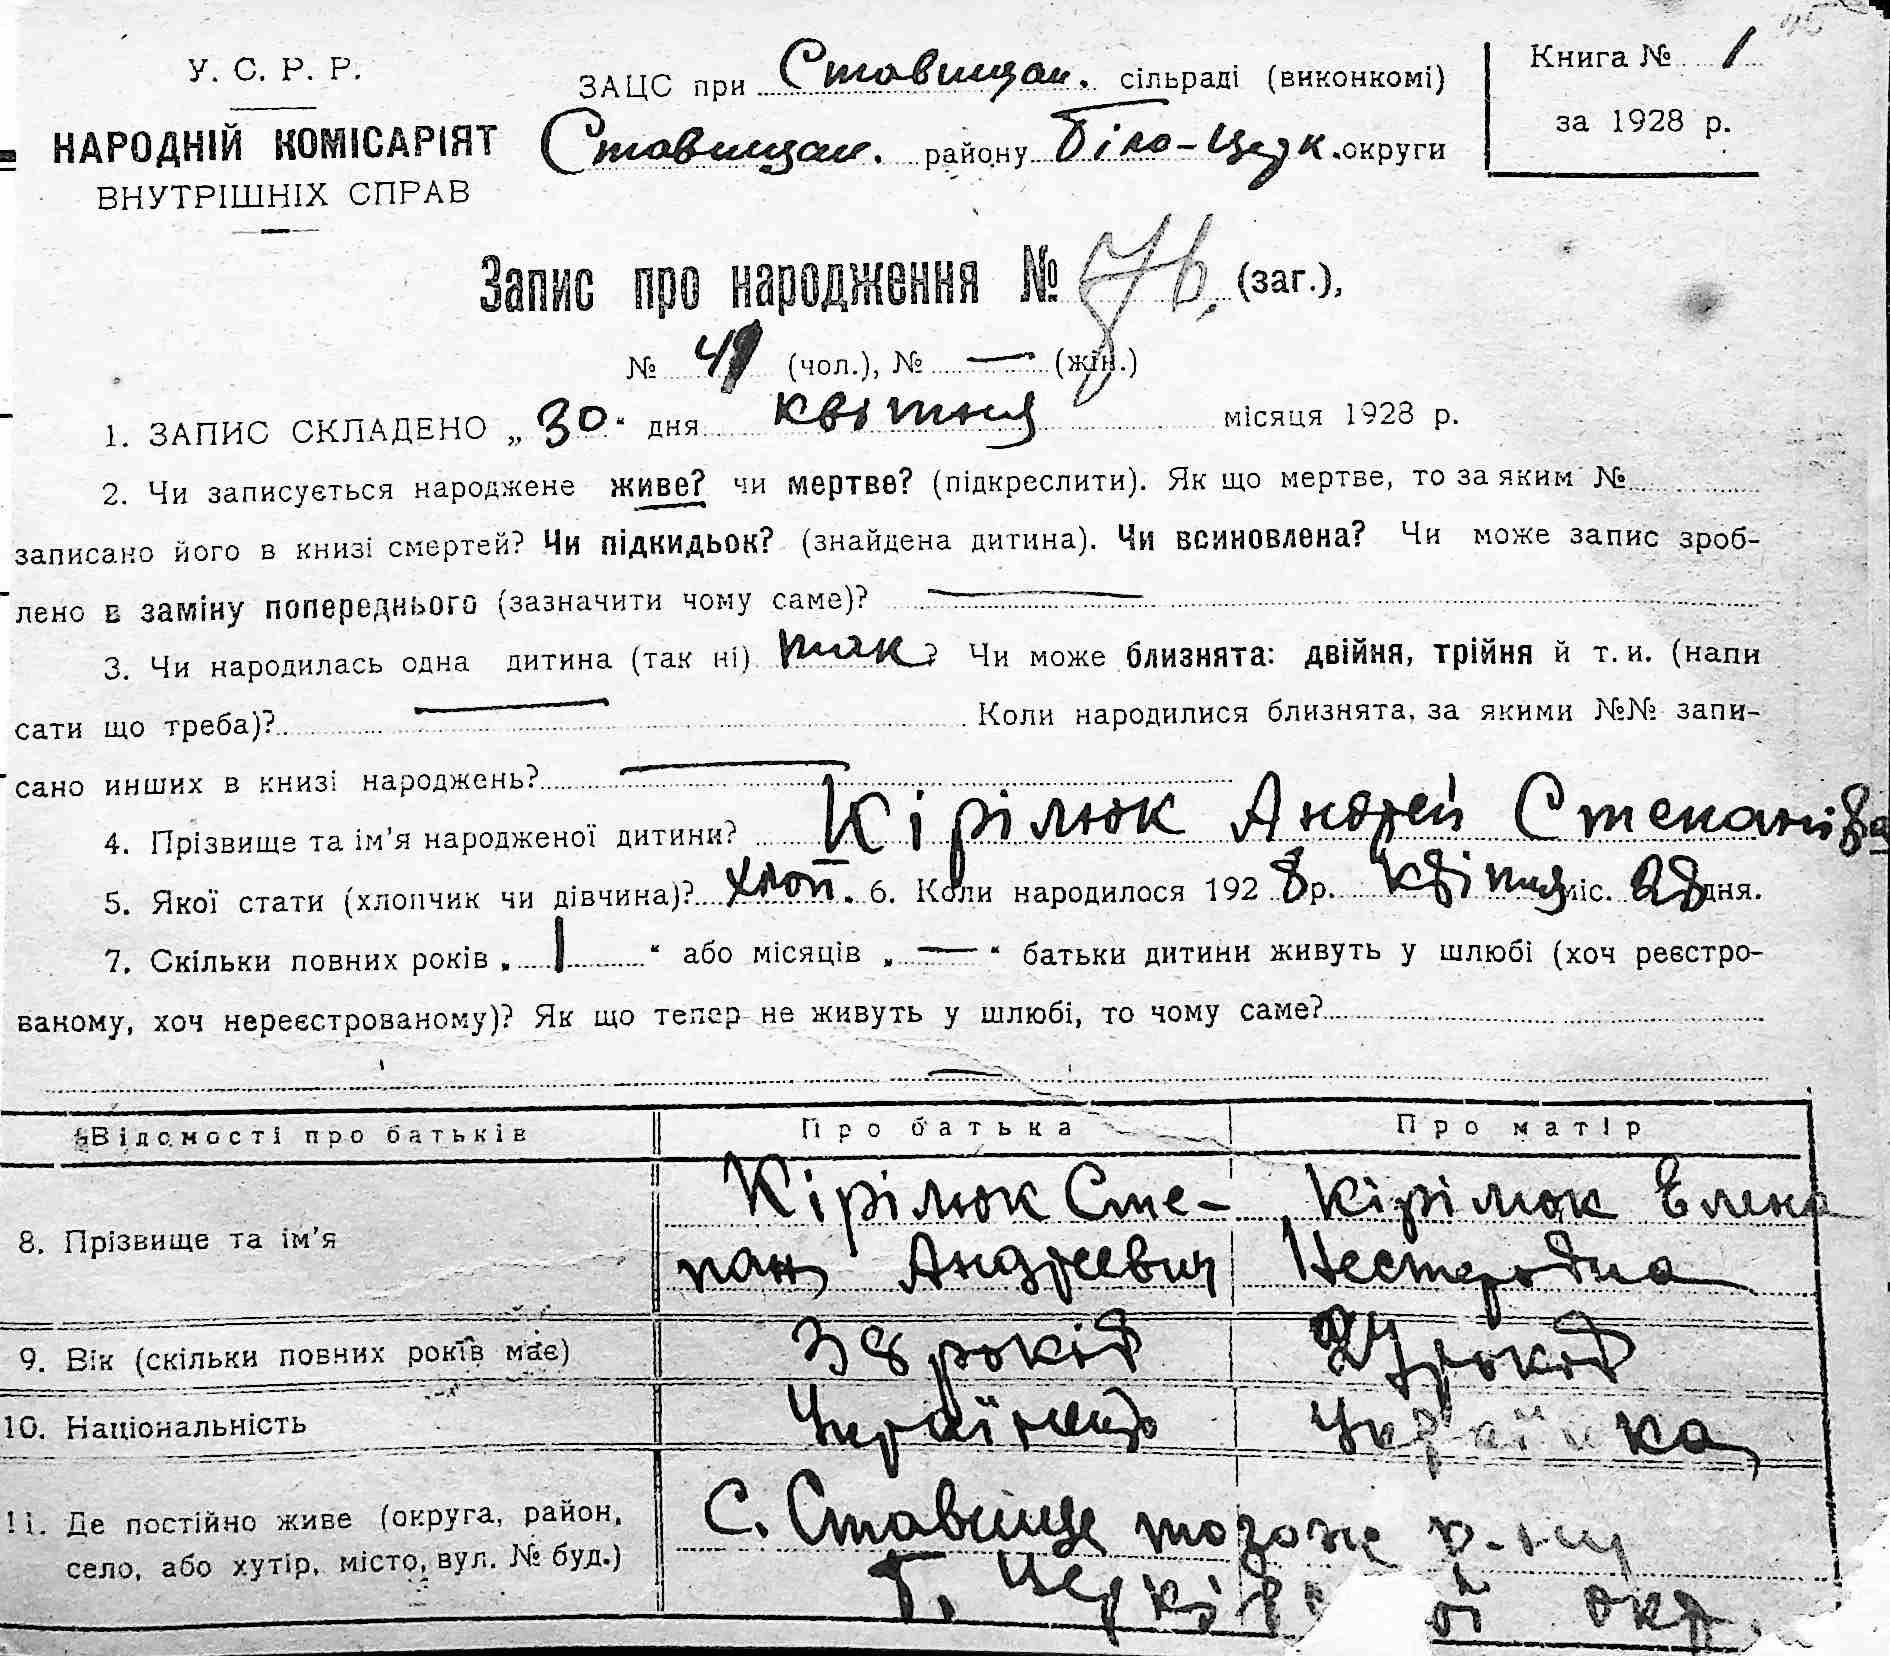 У. С. Р. Р.
НАРОДНІЙ КОМІСАРІЯТ
ВНУТРІШНІХ СПРАВ
ЗАЦС при Ставищан. сільраді (виконкомі)
Ставищан. району Біло-Церк. округи
Книга № 1
за 1928 р.
Запис про народження № 76. (заг.),
№ 49 (чол.), № — (жін.)
1. ЗАПИС СКЛАДЕНО „30“ дня квітня місяця 1928 р.
2. Чи записується народжене живе? чи мертве? (підкреслити). Як що мертве, то за яким №
записано його в книзі смертей? Чи підкидьок? (знайдена дитина). Чи всиновлена? Чи може запис зроб-
лено в заміну попереднього (зазначити чому саме)? —
3. Чи народилась одна дитина (так ні) так? Чи може близнята: двійня, трійня й т. и. (напи
сати що треба)? — Коли народилися близнята, за якими №№ запи-
сано инших в книзі народжень? —
4. Прізвище та ім'я народженої дитини? Кірілюк Андрей Степанів
5. Якої стати (хлопчик чи дівчина)? хлоп. 6. Коли народилося 1928 р. квітня міс. 28 дня.
7. Скільки повних років „1“ або місяців „—“ батьки дитини живуть у шлюбі (хоч реєстро-
ваному, хоч нереєстрованому)? Як що тепер не живуть у шлюбі, то чому саме?
—
Відомості про батьків Про батька Про матір
8. Прізвище та ім'я Кірілюк Сте- Кірілюк Елена
пан Андреевич Нестеровна
9. Вік (скільки повних років має) 38 років років
10. Національність Українець Українка
11. Де постійно живе (округа, район, с. Ставище тогож р-ну
село, або хутір, місто, вул. № буд.) Б. Церків ої окр.